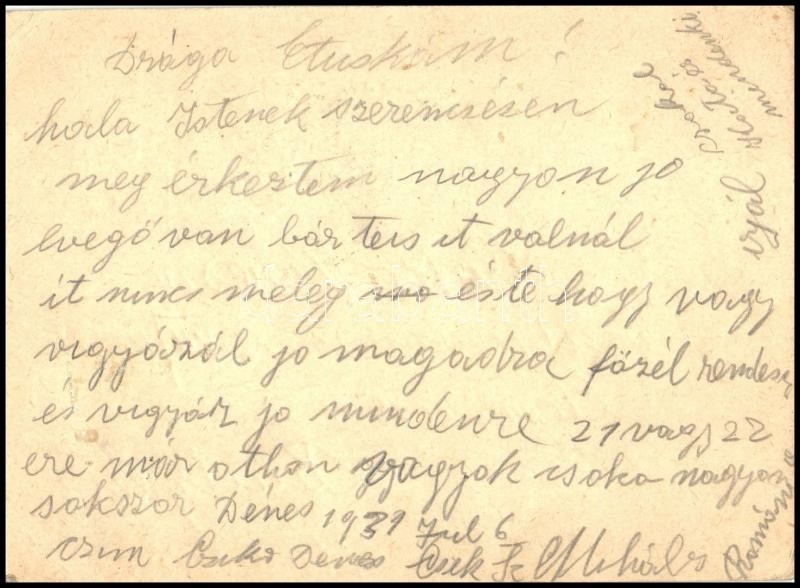 Drága Etuskám!
hala Istenek szerencsésen
meg érkeztem nagyon jo
levegő van bár teis it valnál
it nincs meleg és te hogy vagy
vigyázál jo magadra főzél rendesen
és vigyáz jo mindenre 21 vagy 22
ere már othon vagyok csoka nagyon
sokszor Dénes 1939 Jul 6
czim Csiki Dénes Csik Sz Mihály
Románia
irjál
csokol
mindenki